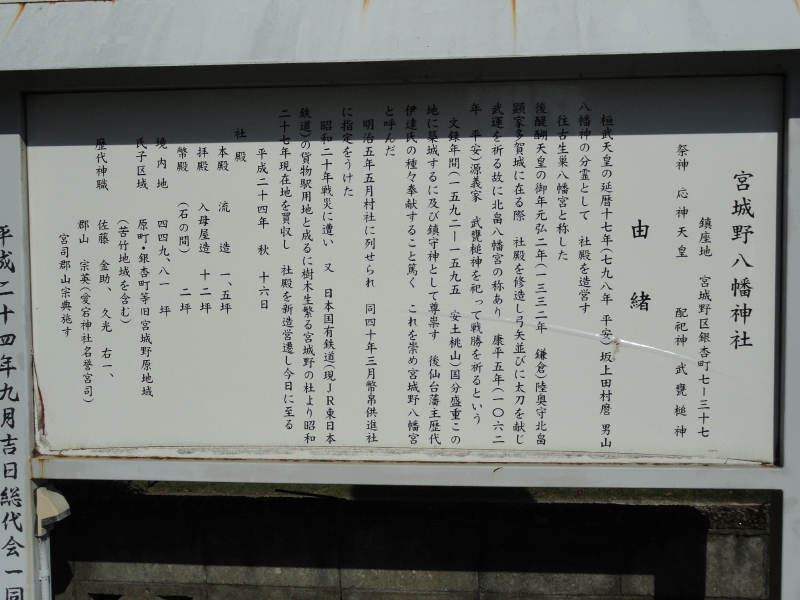 宮城野八幡神社
鎮座地 宮城野区銀杏町七ー三十七
祭神 応神天皇 配祀神 武甕槌神
由緒
桓武天皇の延暦十七年(七九八年 平安)坂上田村麿 男山
八幡神の分霊として 社殿を造営す
往古生巣八幡宮と称した
後醍醐天皇の御年元弘二年(一三三二年 鎌倉)陸奥守北畠
顕家多賀城に在る際 社殿を修造し弓矢並びに太刀を献じ
武運を祈る故に北畠八幡宮の称あり 康平五年(一〇六二
年 平安)源義家 武甕槌神を祀って戦勝を祈るという
文録年間(一五九二ー一五九五 安土桃山)国分盛重この
地に築城するに及び鎮守神として尊崇す 後仙台藩主歴代
伊達氏の種々奉献すること篤く これを崇め宮城野八幡宮
と呼んだ
明治五年五月村社に列せられ 同四十年三月幣帛供進社
に指定をうけた
昭和二十年戦災に遭い 又 日本国有鉄道(現JR東日本
鉄道)の貨物駅用地と成るに樹木生繁る宮城野の杜より昭和
二十七年現在地を買収し 社殿を新造営遷し今日に至る
平成二十四年 秋 十六日
社殿
本殿 流造 一、五坪
拝殿 入母屋造 十二坪
幣殿 (石の間) 二坪
境内地 四四九、八一 坪
氏子区域 原町・銀杏町等旧宮城野原地域
(苦竹地域を含む)
歴代神職 佐藤 金助、 久光 右一、
郡山 宗英(愛宮神社名誉宮司)
宮司郡山宗典施す
平成二十四年九月吉日総代会一同